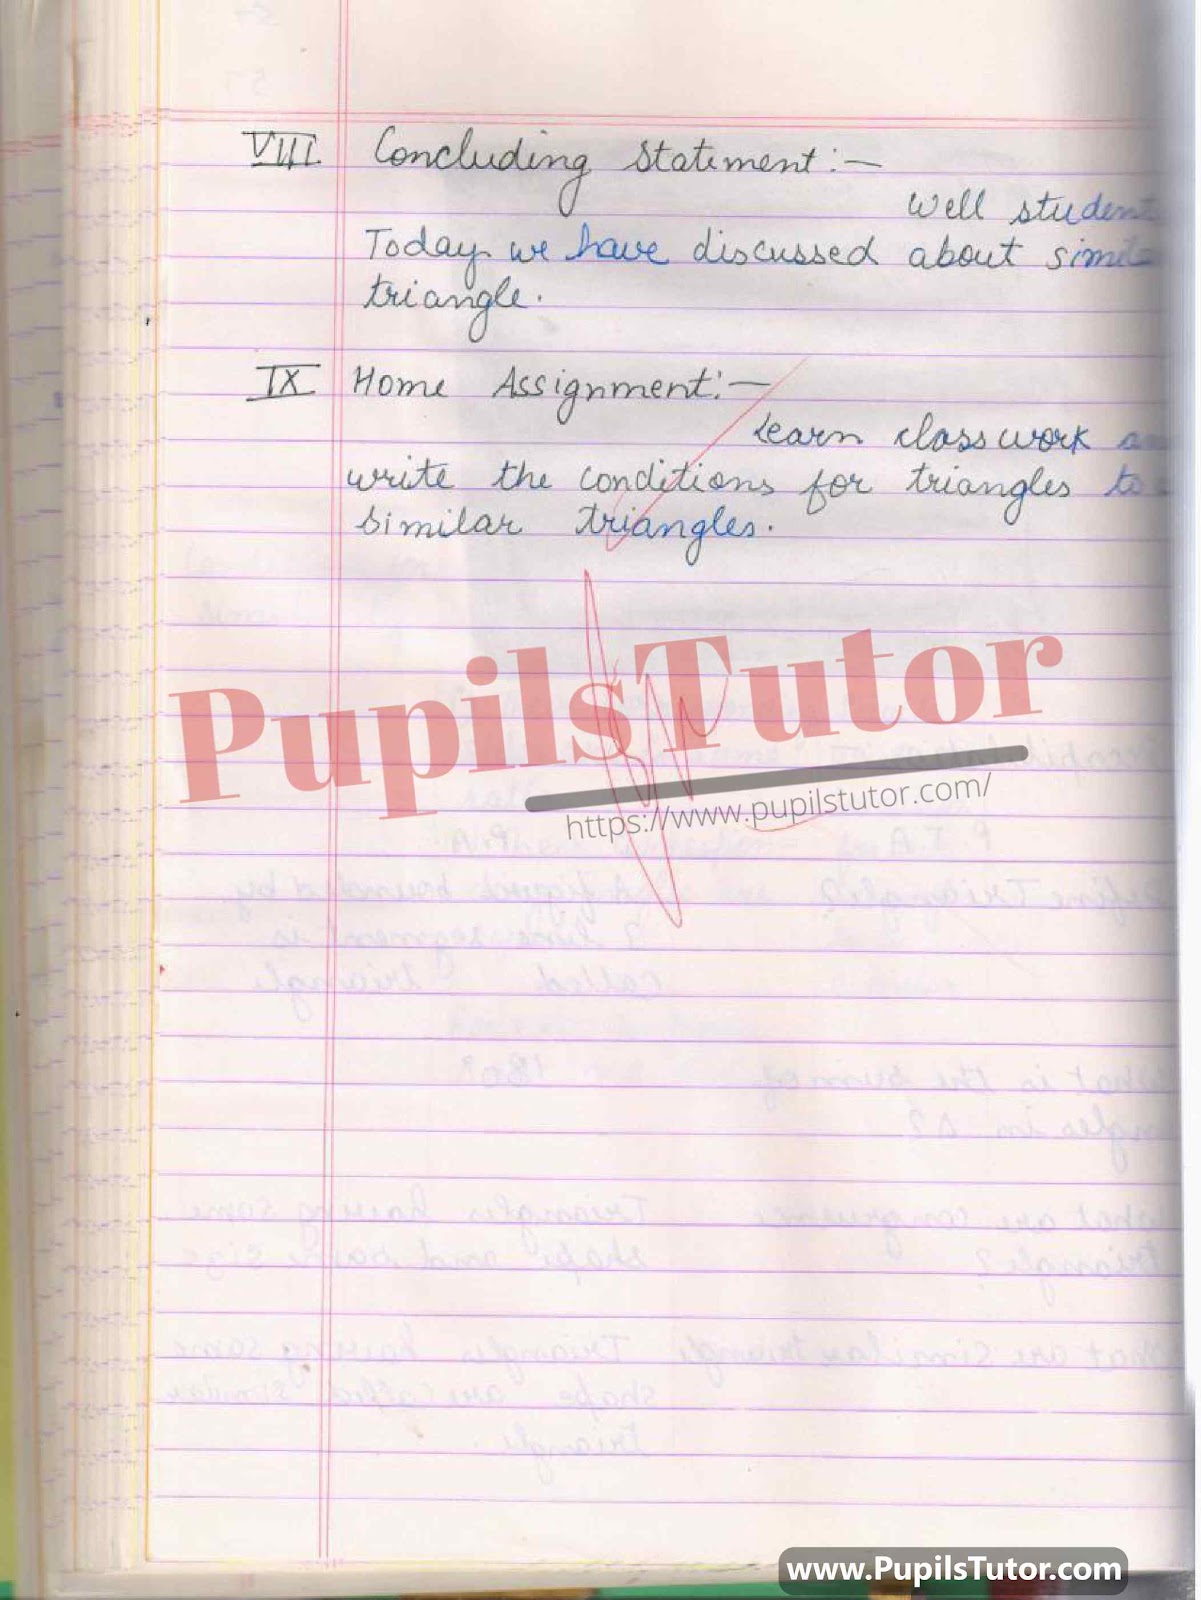 VIII. Concluding Statement:-
Well student
Today we have discussed about simil
triangle.
IX Home Assignment:-
Learn classwork a
write the conditions for triangles to
similar triangles.
PupilsTutor
https://www.pupilstutor.com/
www.PupilsTutor.com